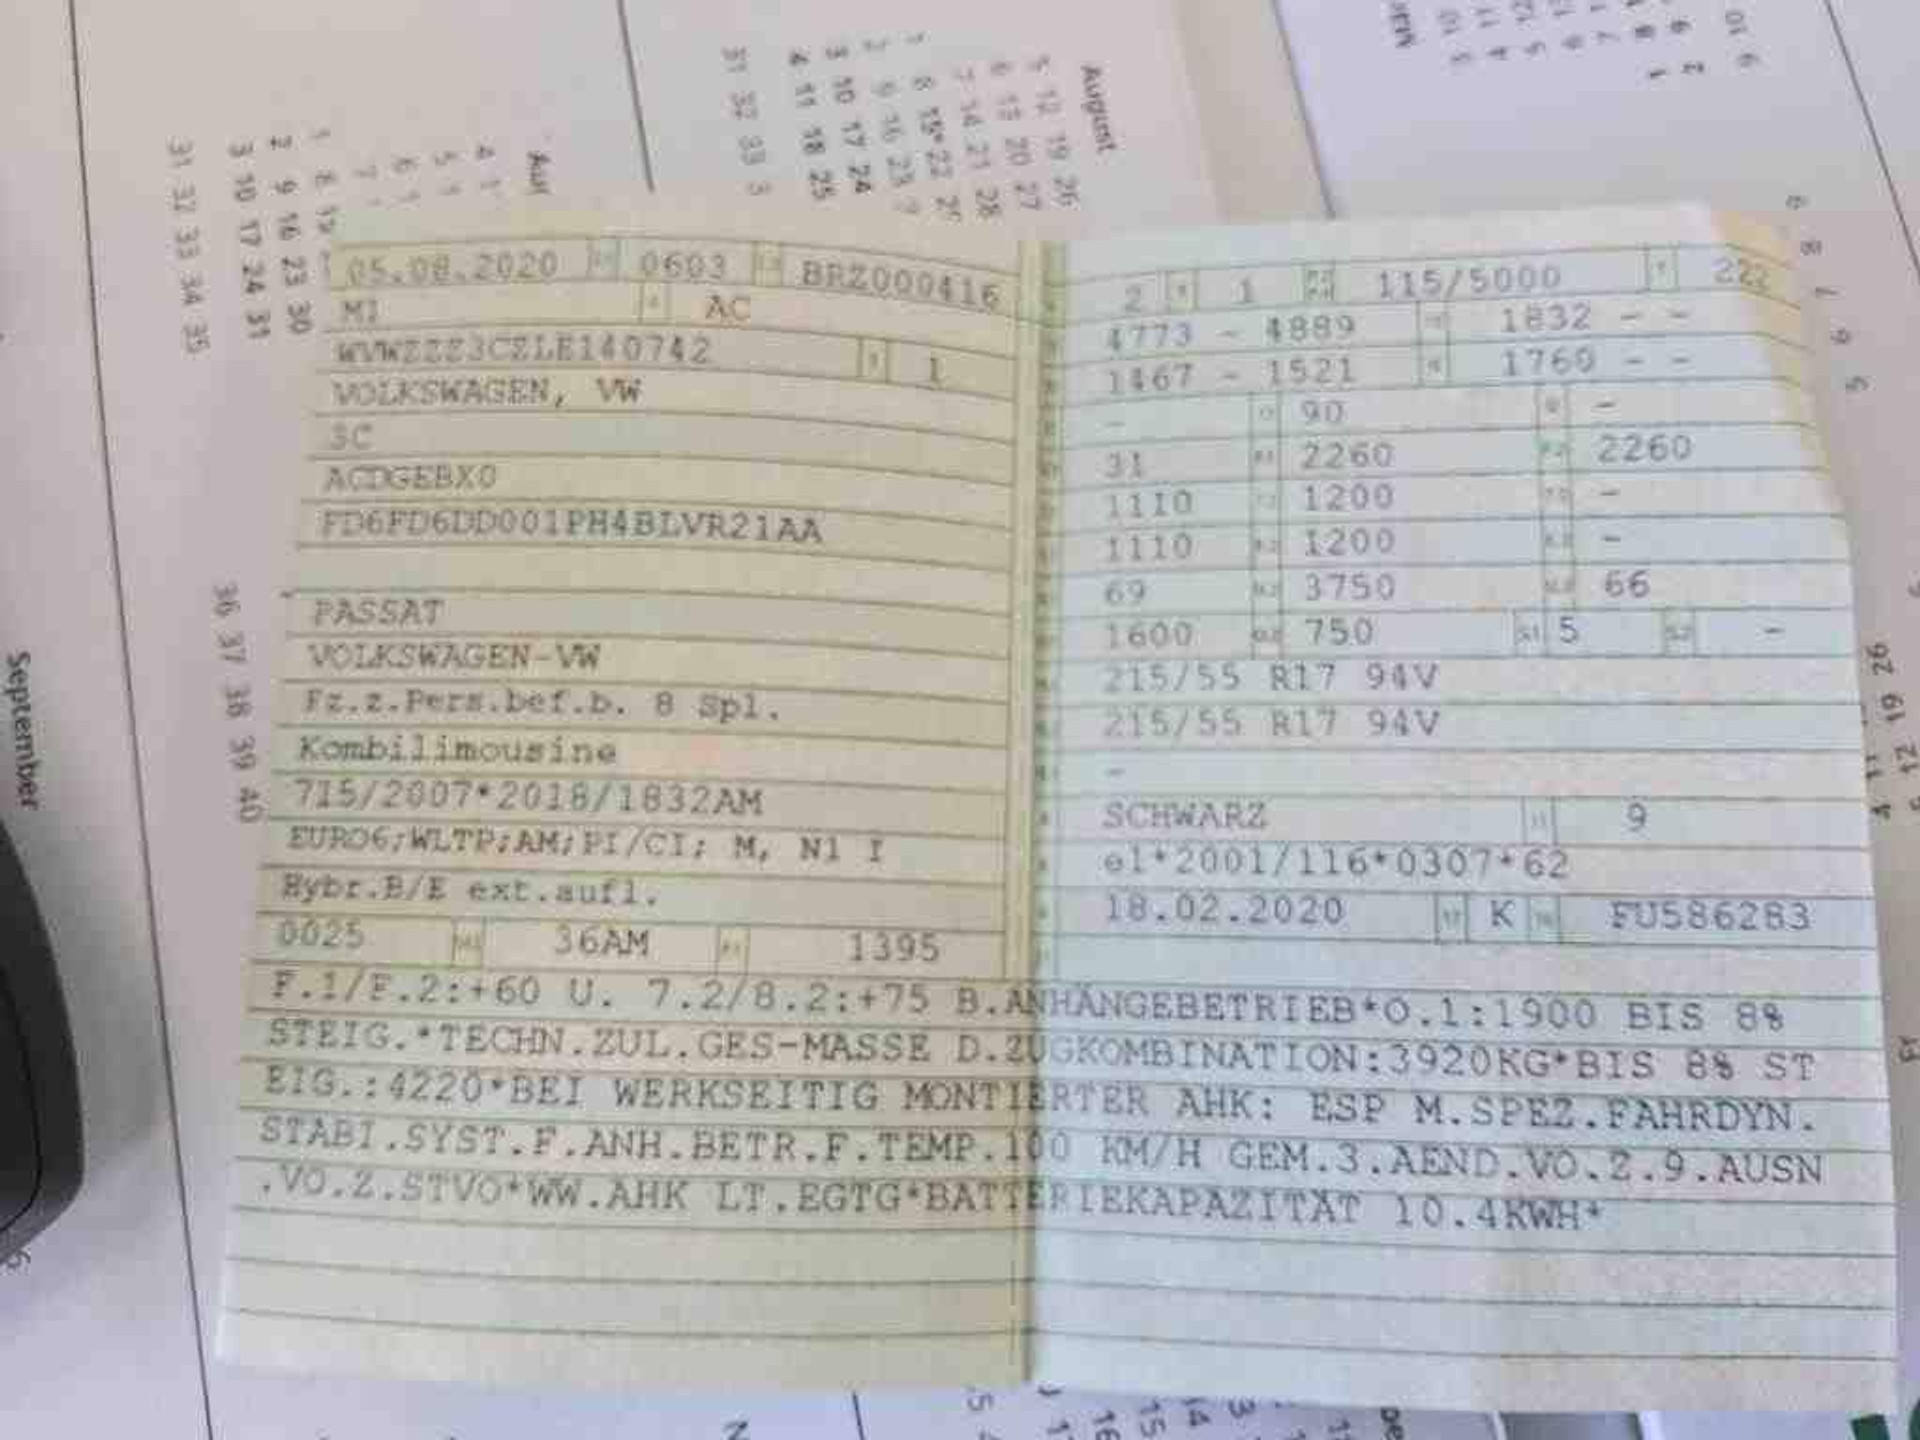 August
5 12 19 26
6 13 20 27
7 14 21 28
1 8 15* 22
2 9 16 23
3 10 17 24
4 11 18 25
31 32 33
2 9 16 23 30
3 10 17 24 31
31 32 33 34 35
36 37 38 39 40
September
05.08.2020 0603 BRZ000416
M1 AC
WVWZZZ3CZLE140742 1
VOLKSWAGEN, VW
3C
ACDGEBX0
FD6FD6DD001PH4BLVR21AA
PASSAT
VOLKSWAGEN-VW
Fz.z.Pers.bef.b. 8 Spl.
Kombilimousine
715/2007*2018/1832AM
EURO6;WLTP;AM;PI/CI; M, N1 I
Hybr.B/E ext.aufl.
0025 36AM 1395
2 1 115/5000 222
4773 - 4889 1832 - -
1467 - 1521 1760 - -
- 90 -
31 2260 2260
1110 1200 -
1110 1200 -
69 3750 66
1600 750 5 -
215/55 R17 94V
215/55 R17 94V
-
SCHWARZ 9
e1*2001/116*0307*62
18.02.2020 K FU586283
F.1/F.2:+60 U. 7.2/8.2:+75 B.ANHÄNGEBETRIEB*O.1:1900 BIS 8%
STEIG.*TECHN.ZUL.GES-MASSE D.ZUGKOMBINATION:3920KG*BIS 8% ST
EIG.:4220*BEI WERKSEITIG MONTIERTER AHK: ESP M.SPEZ.FAHRDYN.
STABI.SYST.F.ANH.BETR.F.TEMP.100 KM/H GEM.3.AEND.VO.Z.9.AUSN
.VO.Z.STVO*WW.AHK LT.EGTG*BATTERIEKAPAZITÄT 10.4KWH*